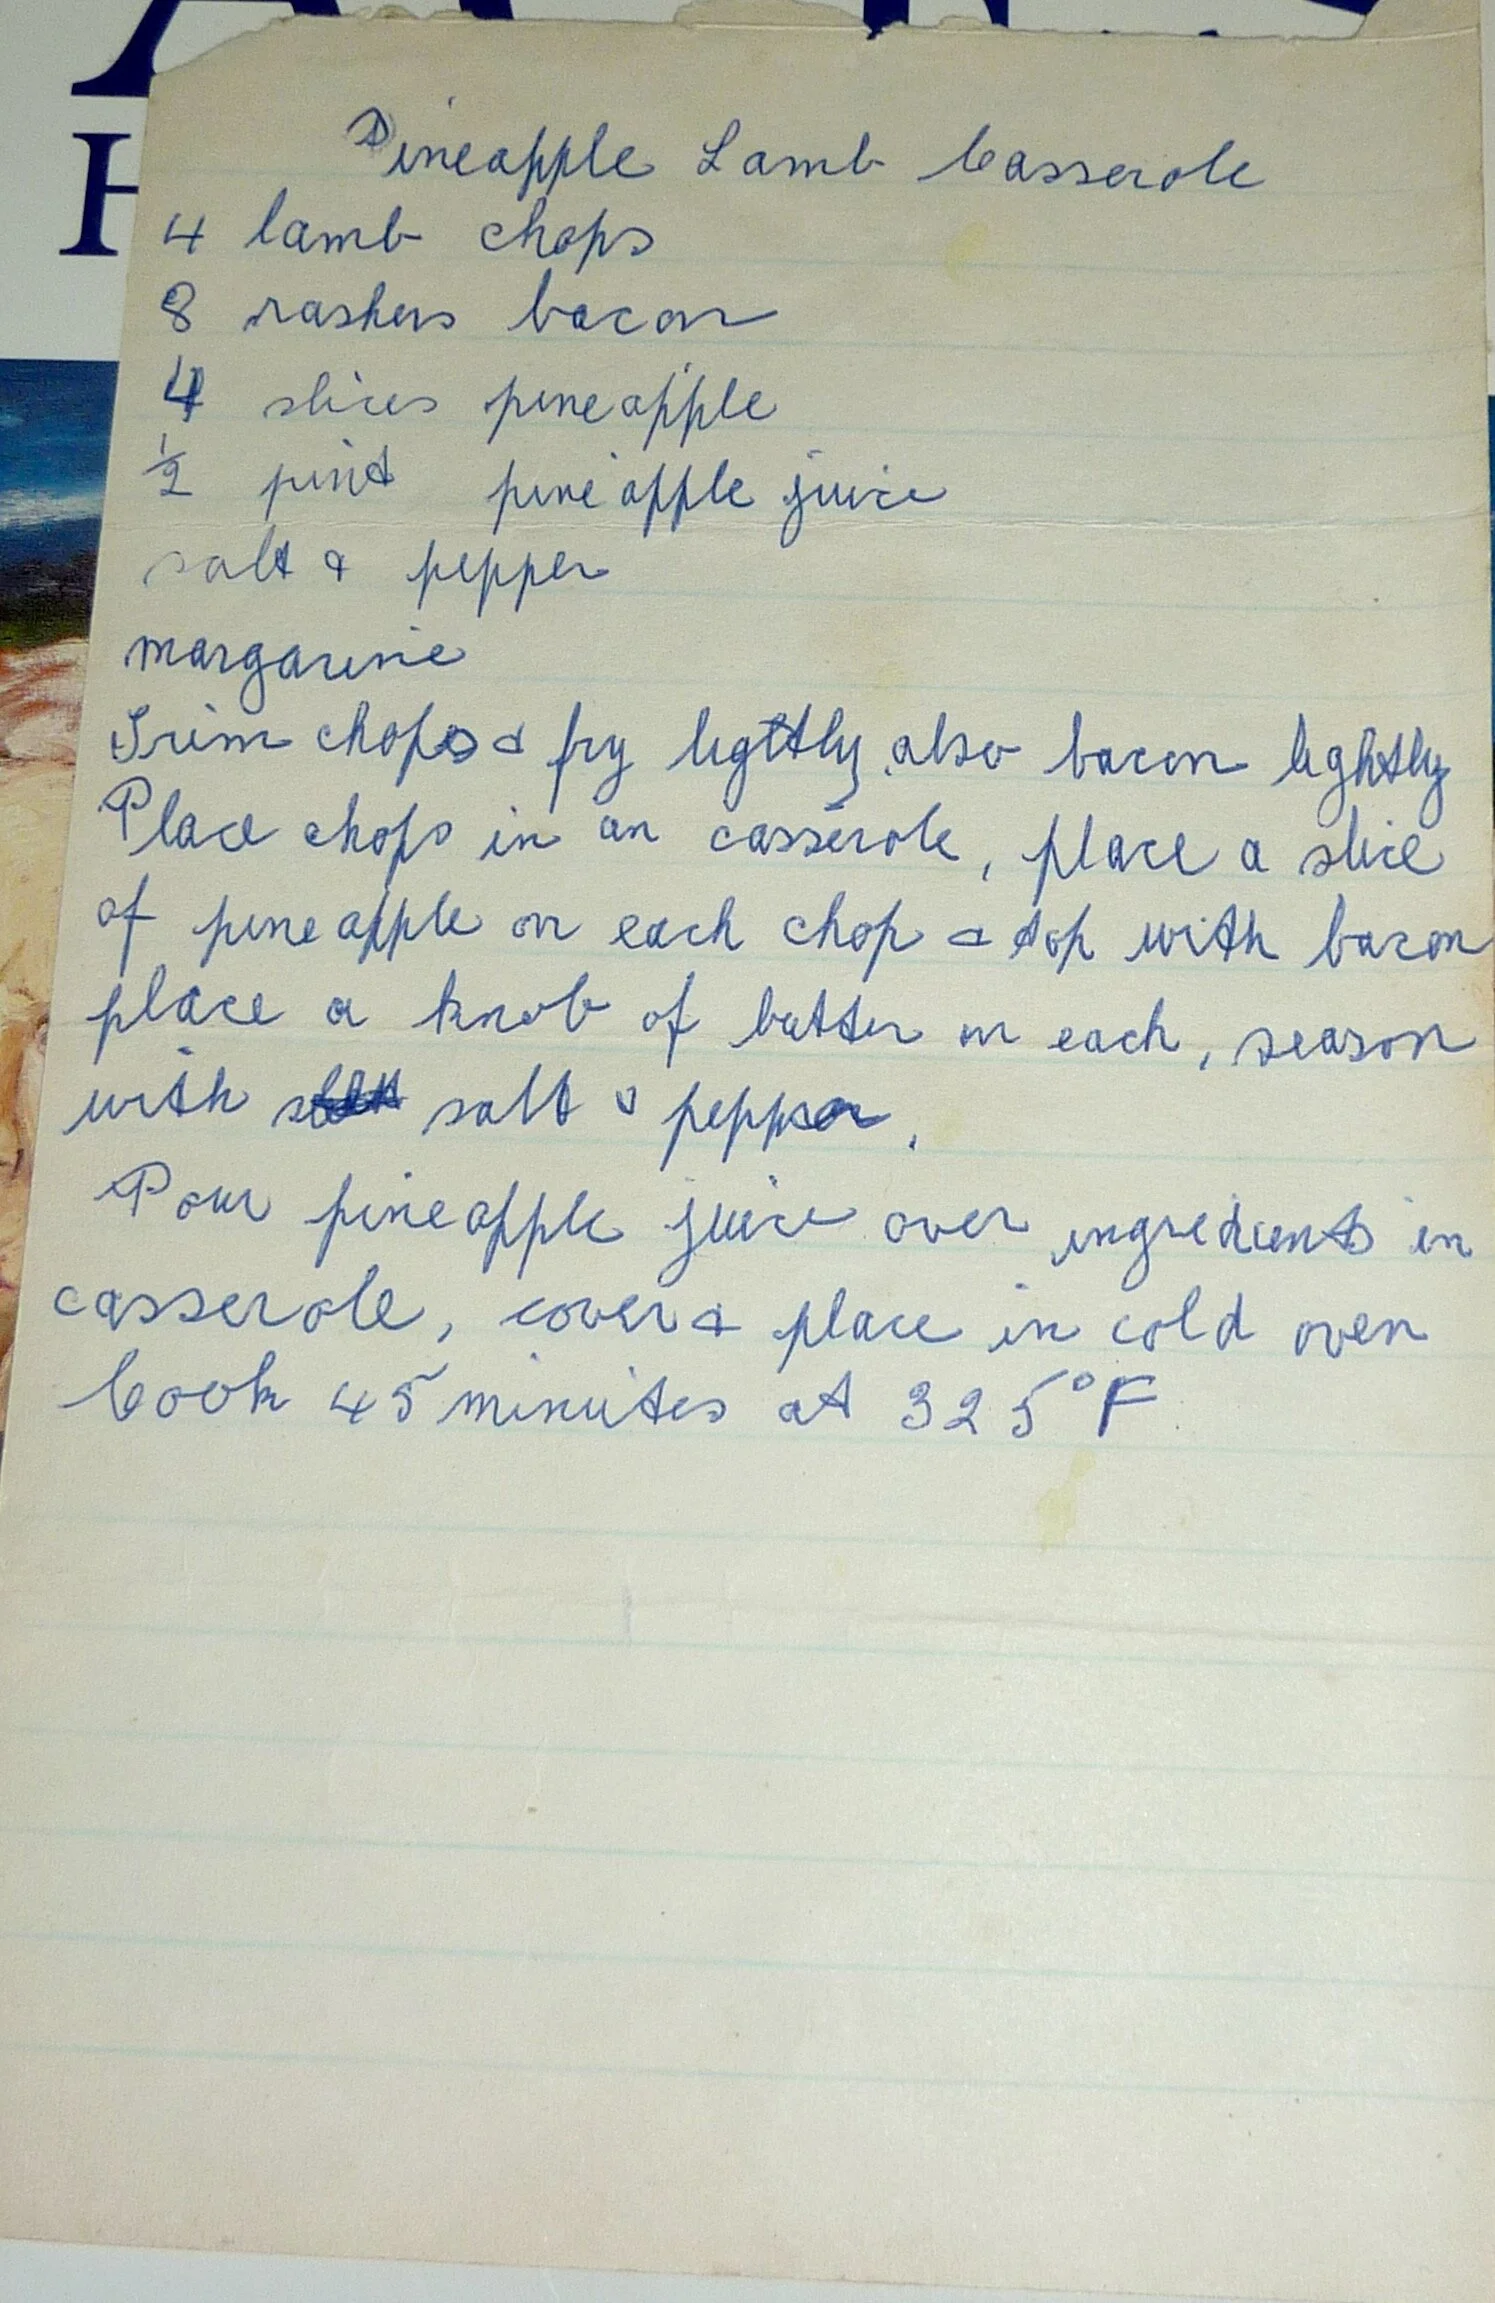 Pineapple Lamb Casserole
4 lamb chops
8 rashers bacon
4 slices pineapple
1/2 pint pineapple juice
salt & pepper
margarine
Trim chops & fry ligttly, also bacon lightly
Place chops in an casserole, place a slice
of pineapple on each chop & top with bacon
place a knob of butter on each, season
with salt & pepper.
Pour pineapple juice over ingredients in
casserole, cover & place in cold oven
Cook 45 minutes at 325°F